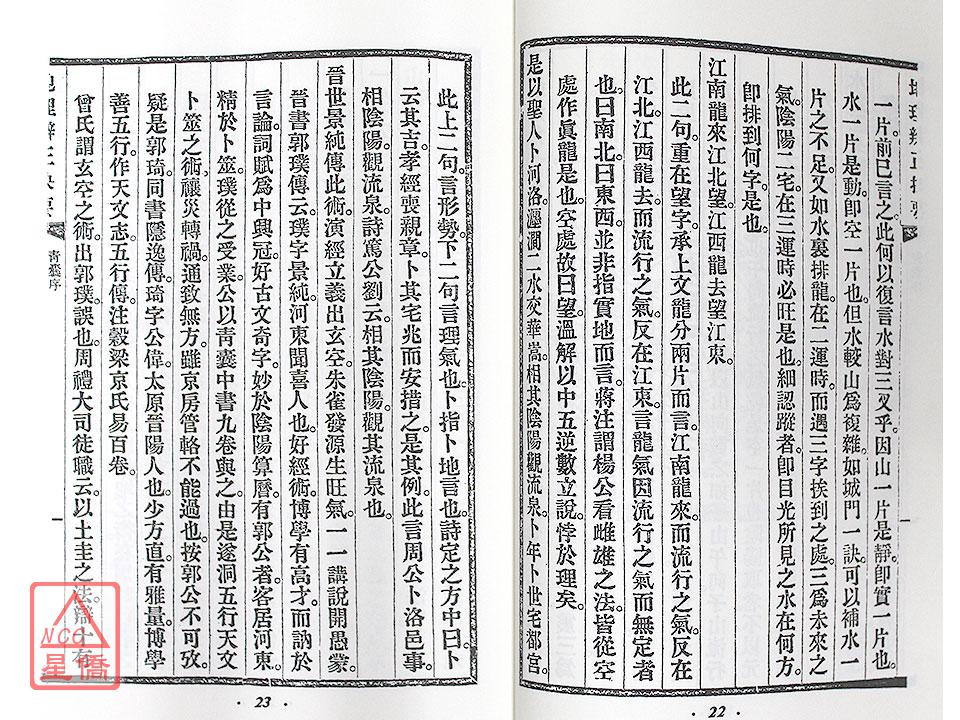 一片前已言之此何以復言水對三叉乎因山一片是靜卽實一片也
水一片是動卽空一片也但水較山爲複雜如城門一訣可以補水一
片之不足又如水裏排龍在二運時而遇三字挨到之處三爲未來之
氣陰陽二宅在三運時必旺是也細認蹤者卽目光所見之水在何方
卽排到何字是也
江南龍來江北望江西龍去望江東
此二句重在望字承上文龍分兩片而言江南龍來而流行之氣反在
江北江西龍去而流行之氣反在江東言龍氣因流行之氣而無定者
也曰南北曰東西並非指實地而言蔣注謂楊公看雌雄之法皆從空
處作眞龍是也空處故曰望溫解以中五逆數立說悖於理矣
是以聖人卜河洛瀍澗二水交華嵩相其陰陽觀流泉卜年卜世宅都宮
· 22 ·
此上二句言形勢下二句言理氣也卜指卜地言也詩定之方中曰卜
云其吉孝經喪親章卜其宅兆而安措之是其例此言周公卜洛邑事
相陰陽觀流泉詩篤公劉云相其陰陽觀其流泉也
晉世景純傳此術演經立義出玄空朱雀發源生旺氣一一講說開愚蒙
晉書郭璞傳云璞字景純河東聞喜人也好經術博學有高才而訥於
言論詞賦爲中興冠好古文奇字妙於陰陽算曆有郭公者客居河東
精於卜筮璞從之受業公以青囊中書九卷與之由是遂洞五行天文
卜筮之術禳災轉禍通致無方雖京房管輅不能過也按郭公不可攷
疑是郭琦同書隱逸傳琦字公偉太原晉陽人也少方直有雅量博學
善五行作天文志五行傳注穀梁京氏易百卷
曾氏謂玄空之術出郭璞誤也周禮大司徒職云以土圭之法辯十有
青囊序
一
· 23 ·
NCC
星僑